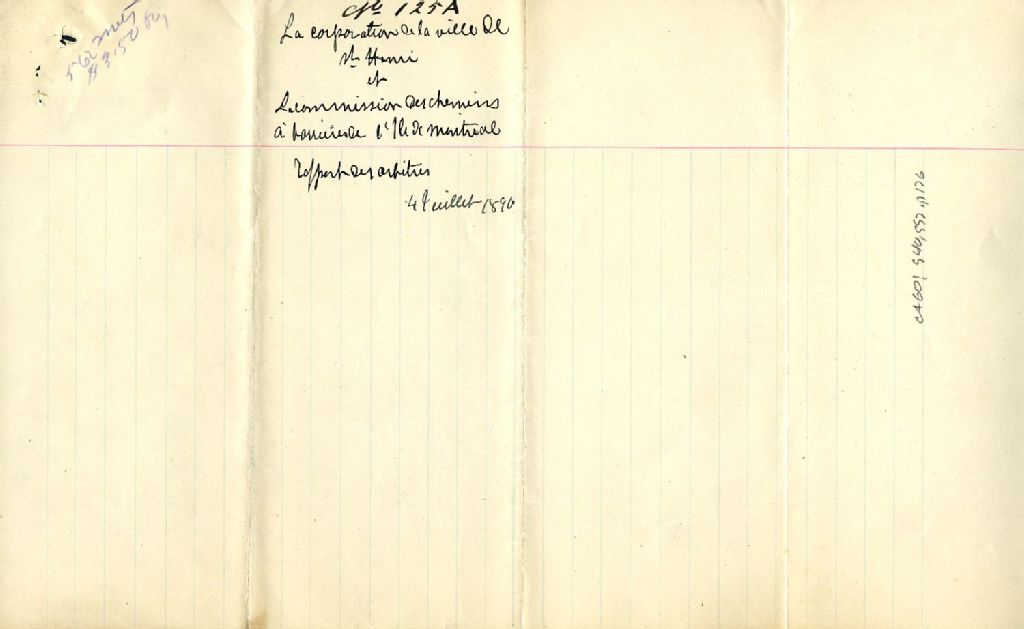 562 mots
$3.50 pay
No 125A
La corporation de la ville de
St Henri
et
La commission des chemins
à barrières de l'Ile de Montréal
Rapport des arbitres
4 Juillet 1890
CA601 S49,SS2